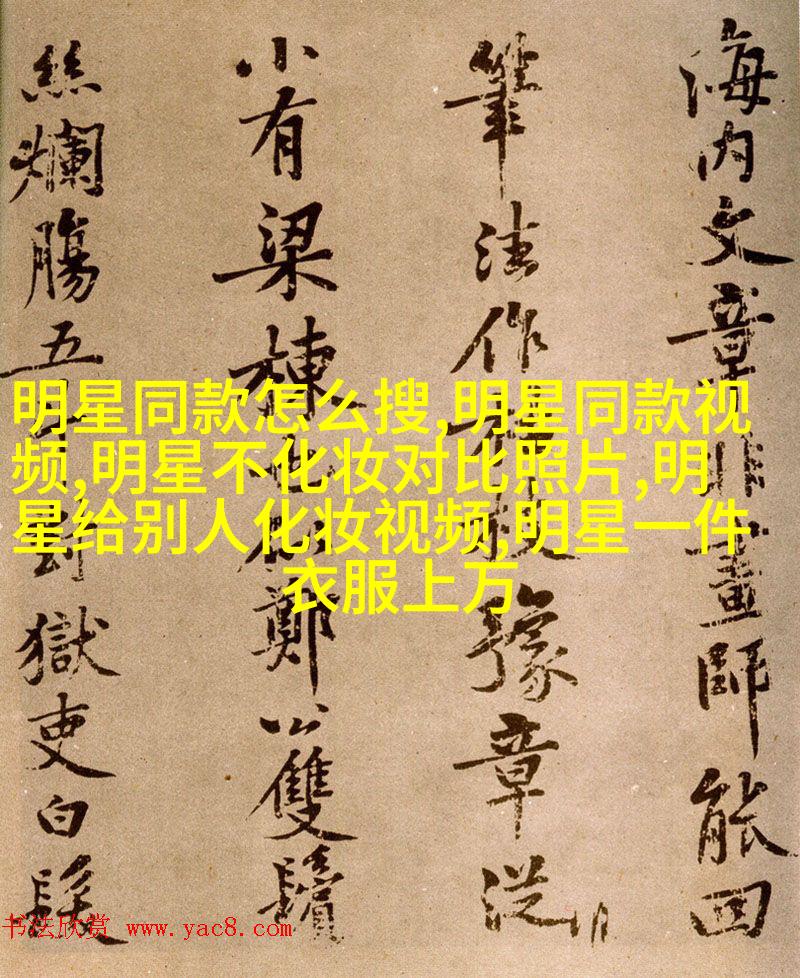 海内文章非畫師能回
筆法作枯枝豫章從
小有梁棟鄭公雙鬢
絲爛腸五獄吏白髮
明星同款怎么搜,明星同款视
频,明星不化妆对比照片,明
星给别人化妆视频,明星一件
衣服上万
书法欣赏 www.yac8.com